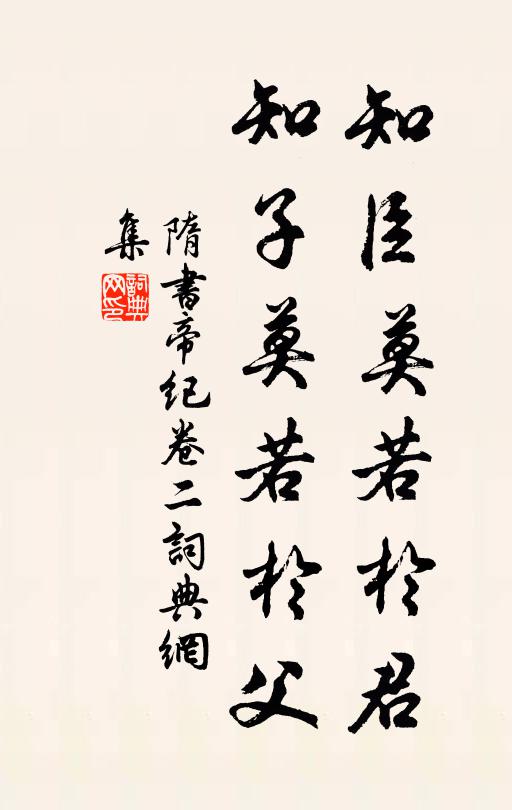 知臣莫若於君
知子莫若於父
隋書帝紀卷二詞典網
集
詞典網印